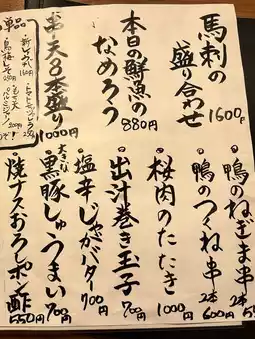 馬刺の盛り合わせ
1600円
本日の鮮魚のなめろう
880円
天8本盛り
1000円
単品
200円
鴨のねぎま串
2本
鴨のつくね串
2本
600円
桜肉のたたき
1000円
出汁巻き玉子
700円
塩辛じゃがバター
700円
大きな黒豚しゅうまい
700円
焼ナスおろしポン酢
550円